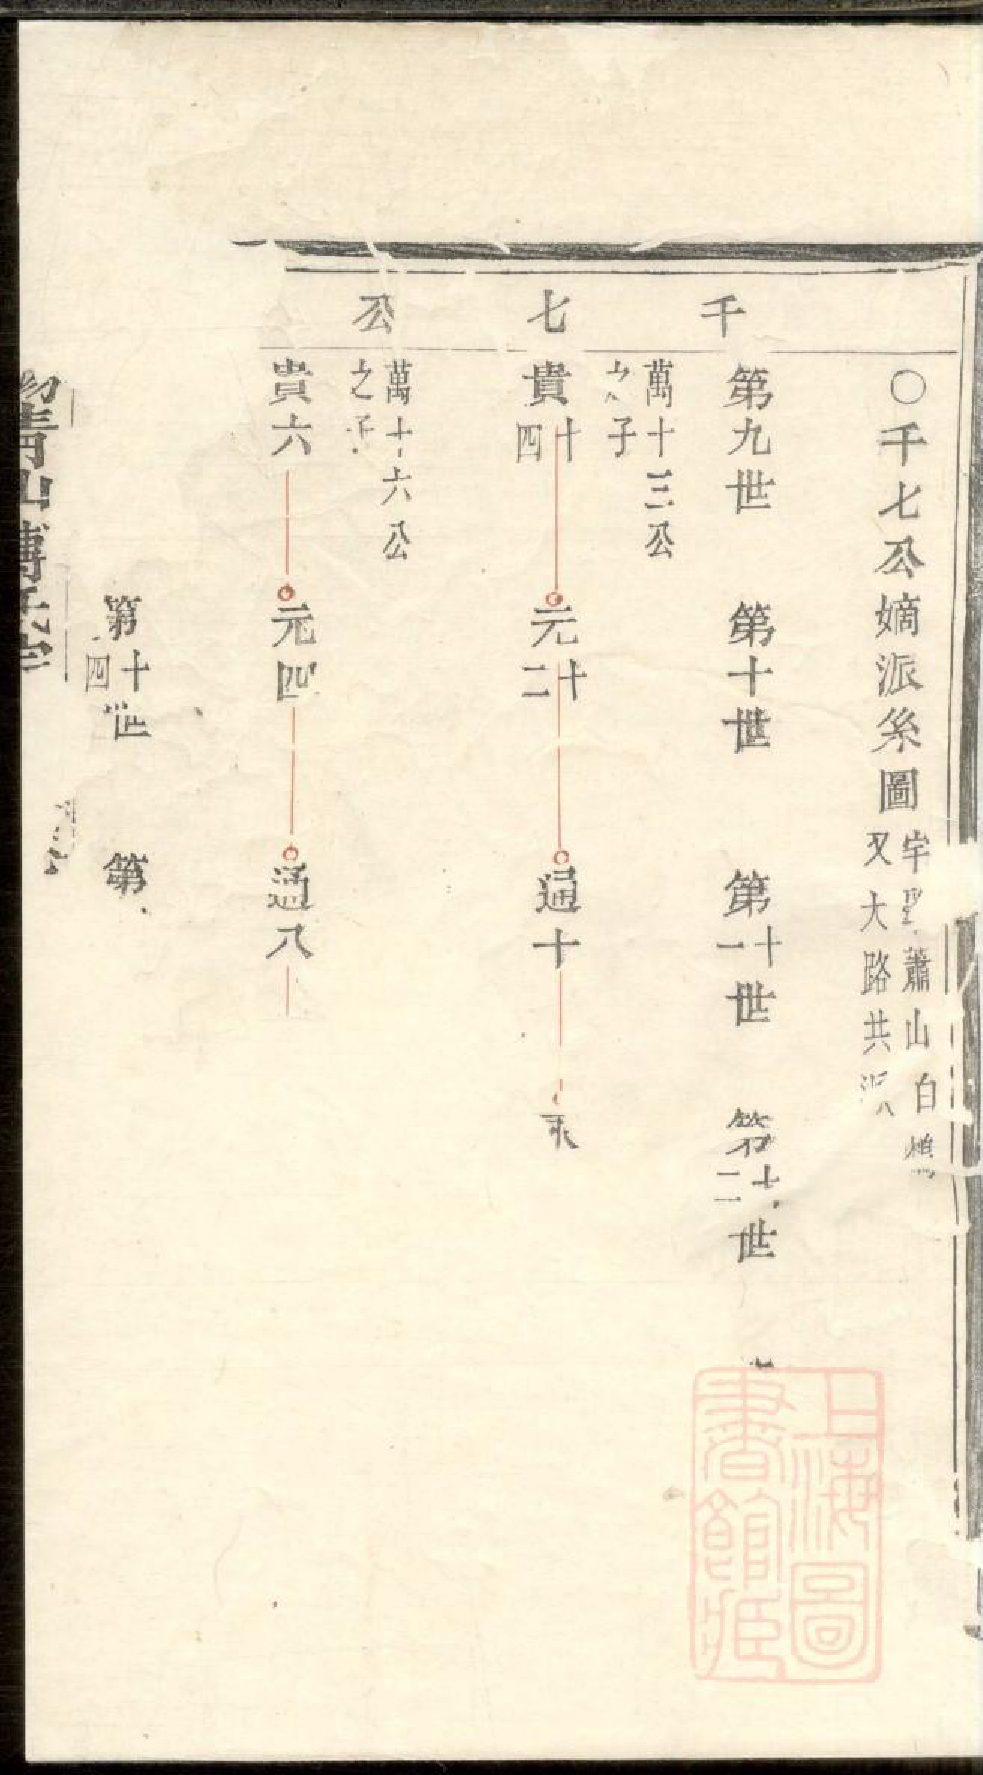 ○千七公嫡派系圖
字聖蕭山白
又大路共派
千七公
第九世 第十世 第十一世 第十二世
萬十三公之子
貴十四 元十二 通十
萬十六公之子
貴六 元四 通八
第十四世 第
青山傅氏宗
上海圖書館藏